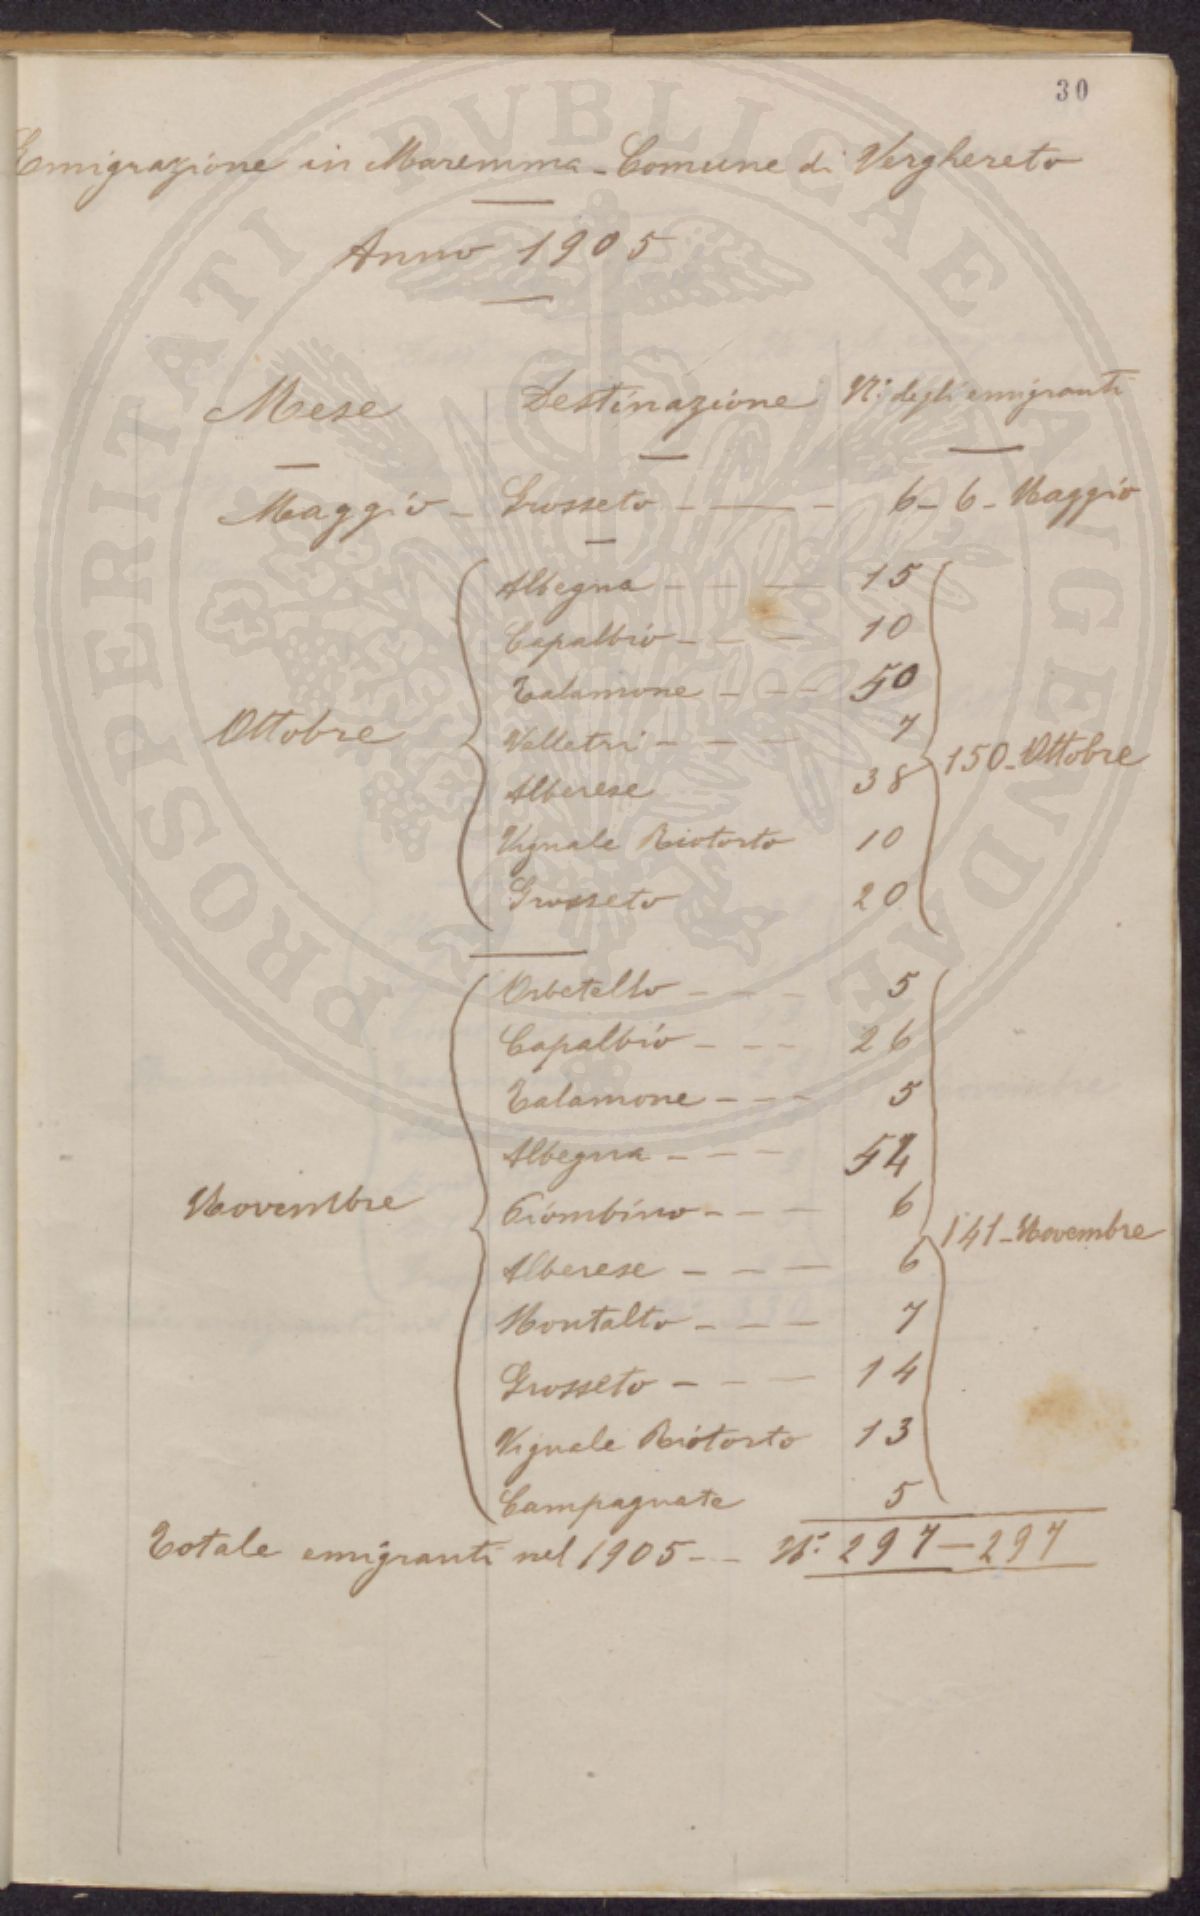 30
Emigrazione in Maremma - Comune di Verghereto
Anno 1905
Mese Destinazione N.° degli emigranti
Maggio - Grosseto - 6 - 6 - Maggio
Albegna - - - 15
Capalbio - - - 10
Talamone - - - 50
Ottobre Velletri - - - 7
150 - Ottobre
Alberese 38
Vignale Riotorto 10
Grosseto 20
Orbetello - - - 5
Capalbio - - - 26
Talamone - - - 5
Albegna - - - 54
Novembre Piombino - - - 6
141 - Novembre
Alberese - - - 6
Montalto - - - 7
Grosseto - - - 14
Vignale Riotorto 13
Campagnate 5
Totale emigranti nel 1905 - - N.° 297 - 297
PROSPERITATI PVBLICAE AVGENDAE